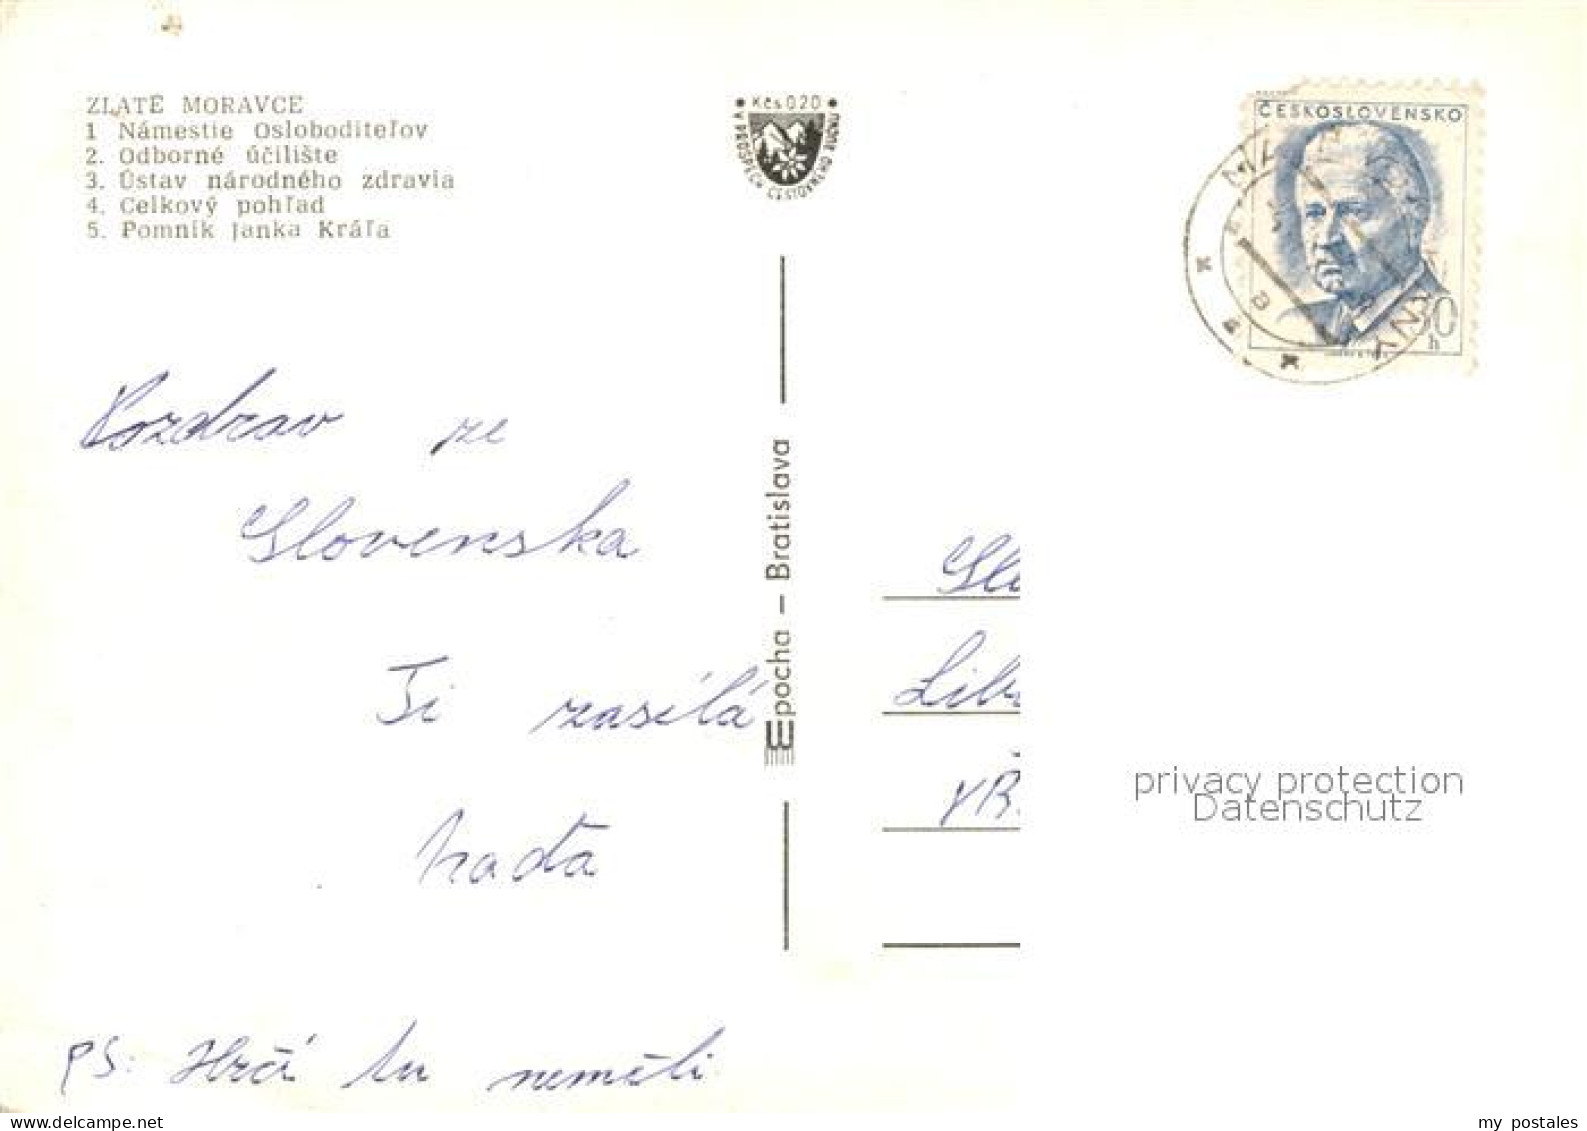 ZLATÉ MORAVCE
1 Námestie Osloboditeľov
2. Odborné účilište
3. Ústav národného zdravia
4. Celkový pohľad
5. Pomník Janka Kráľa
• Kčs 0,20 •
V PROSPECH CESTOVNÉHO RUCHU
ČESKOSLOVENSKO
h
Pozdrav ze
Slovenska
Ti zasílá
Naďa
PS: Hrčí tu neměli
Epocha – Bratislava
privacy protection
Datenschutz
www.delcampe.net
my_postales